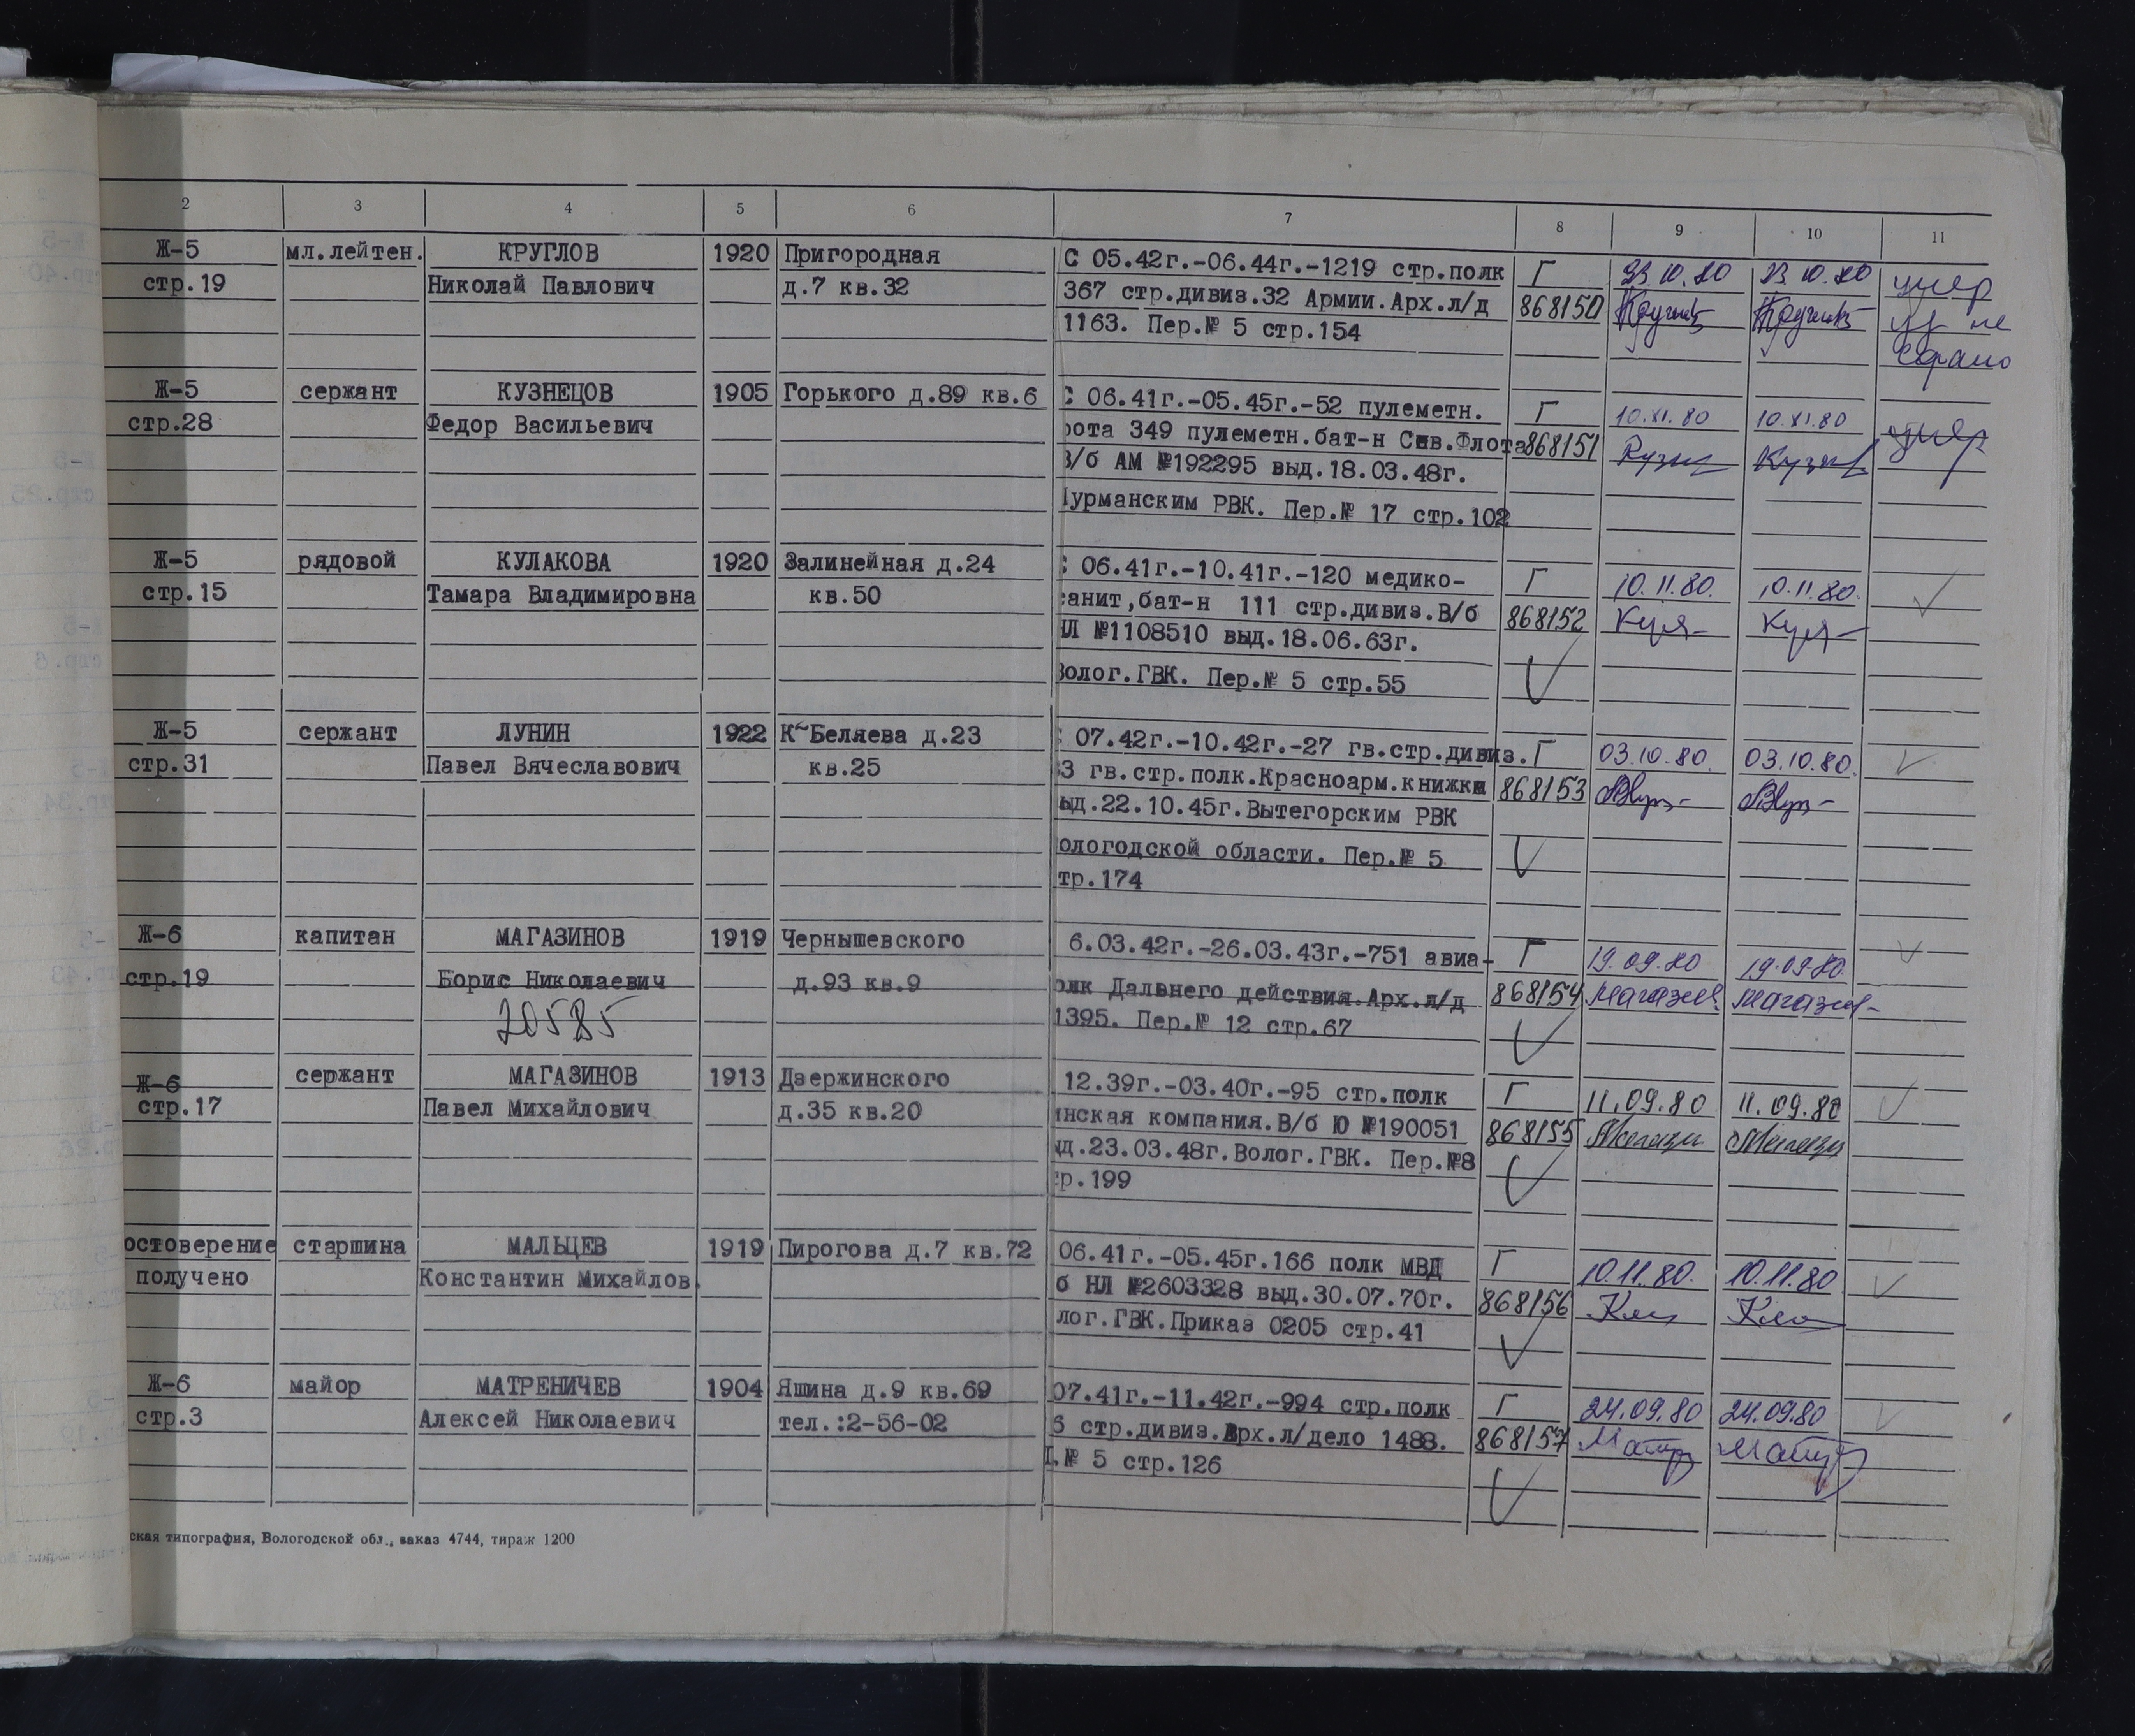 2 3 4 5 6 7 8 9 10 11
Ж-5 мл.лейтен. КРУГЛОВ 1920 Пригородная С 05.42г.-06.44г.-1219 стр.полк Г 23.10.80 23.10.80 умер
стр.19 Николай Павлович д.7 кв.32 367 стр.дивиз.32 Армии.Арх.л/д 868150
1163. Пер.№ 5 стр.154
Ж-5 сержант КУЗНЕЦОВ 1905 Горького д.89 кв.6 С 06.41г.-05.45г.-52 пулеметн. Г 10.XI.80 10.XI.80 умер
стр.28 Федор Васильевич рота 349 пулеметн.бат-н Сев.Флота 868151
В/б АМ №192295 выд.18.03.48г.
урманским РВК. Пер.№ 17 стр.102
Ж-5 рядовой КУЛАКОВА 1920 Залинейная д.24 С 06.41г.-10.41г.-120 медико- Г 10.11.80. 10.11.80.
стр.15 Тамара Владимировна кв.50 санит,бат-н 111 стр.дивиз.В/б 868152
НЛ №1108510 выд.18.06.63г.
Волог.ГВК. Пер.№ 5 стр.55
Ж-5 сержант ЛУНИН 1922 К-Беляева д.23 С 07.42г.-10.42г.-27 гв.стр.дивиз. Г 03.10.80. 03.10.80.
стр.31 Павел Вячеславович кв.25 3 гв.стр.полк.Красноарм.книжка 868153
ыд.22.10.45г.Вытегорским РВК
ологодской области. Пер.№ 5
тр.174
Ж-6 капитан МАГАЗИНОВ 1919 Чернышевского 6.03.42г.-26.03.43г.-751 авиа- Г 19.09.80 19.09.80
стр.19 Борис Николаевич д.93 кв.9 олк Дальнего действия.Арх.л/д 868154 Магазин Магазин
20585 1395. Пер.№ 12 стр.67
Ж-6 сержант МАГАЗИНОВ 1913 Дзержинского 12.39г.-03.40г.-95 стр.полк Г 11.09.80 11.09.80
стр.17 Павел Михайлович д.35 кв.20 инская компания.В/б Ю №190051 868155
ыд.23.03.48г.Волог.ГВК. Пер.№8
р.199
остоверение старшина МАЛЬЦЕВ 1919 Пирогова д.7 кв.72 06.41г.-05.45г.166 полк МВД Г 10.11.80. 10.11.80
получено Константин Михайлов. б НЛ №2603328 выд.30.07.70г. 868156
лог.ГВК.Приказ 0205 стр.41
Ж-6 майор МАТРЕНИЧЕВ 1904 Яшина д.9 кв.69 07.41г.-11.42г.-994 стр.полк Г 24.09.80 24.09.80
стр.3 Алексей Николаевич тел.:2-56-02 6 стр.дивиз.Арх.л/дело 1488. 868157
.№ 5 стр.126
ская типография, Вологодской обл., заказ 4744, тираж 1200